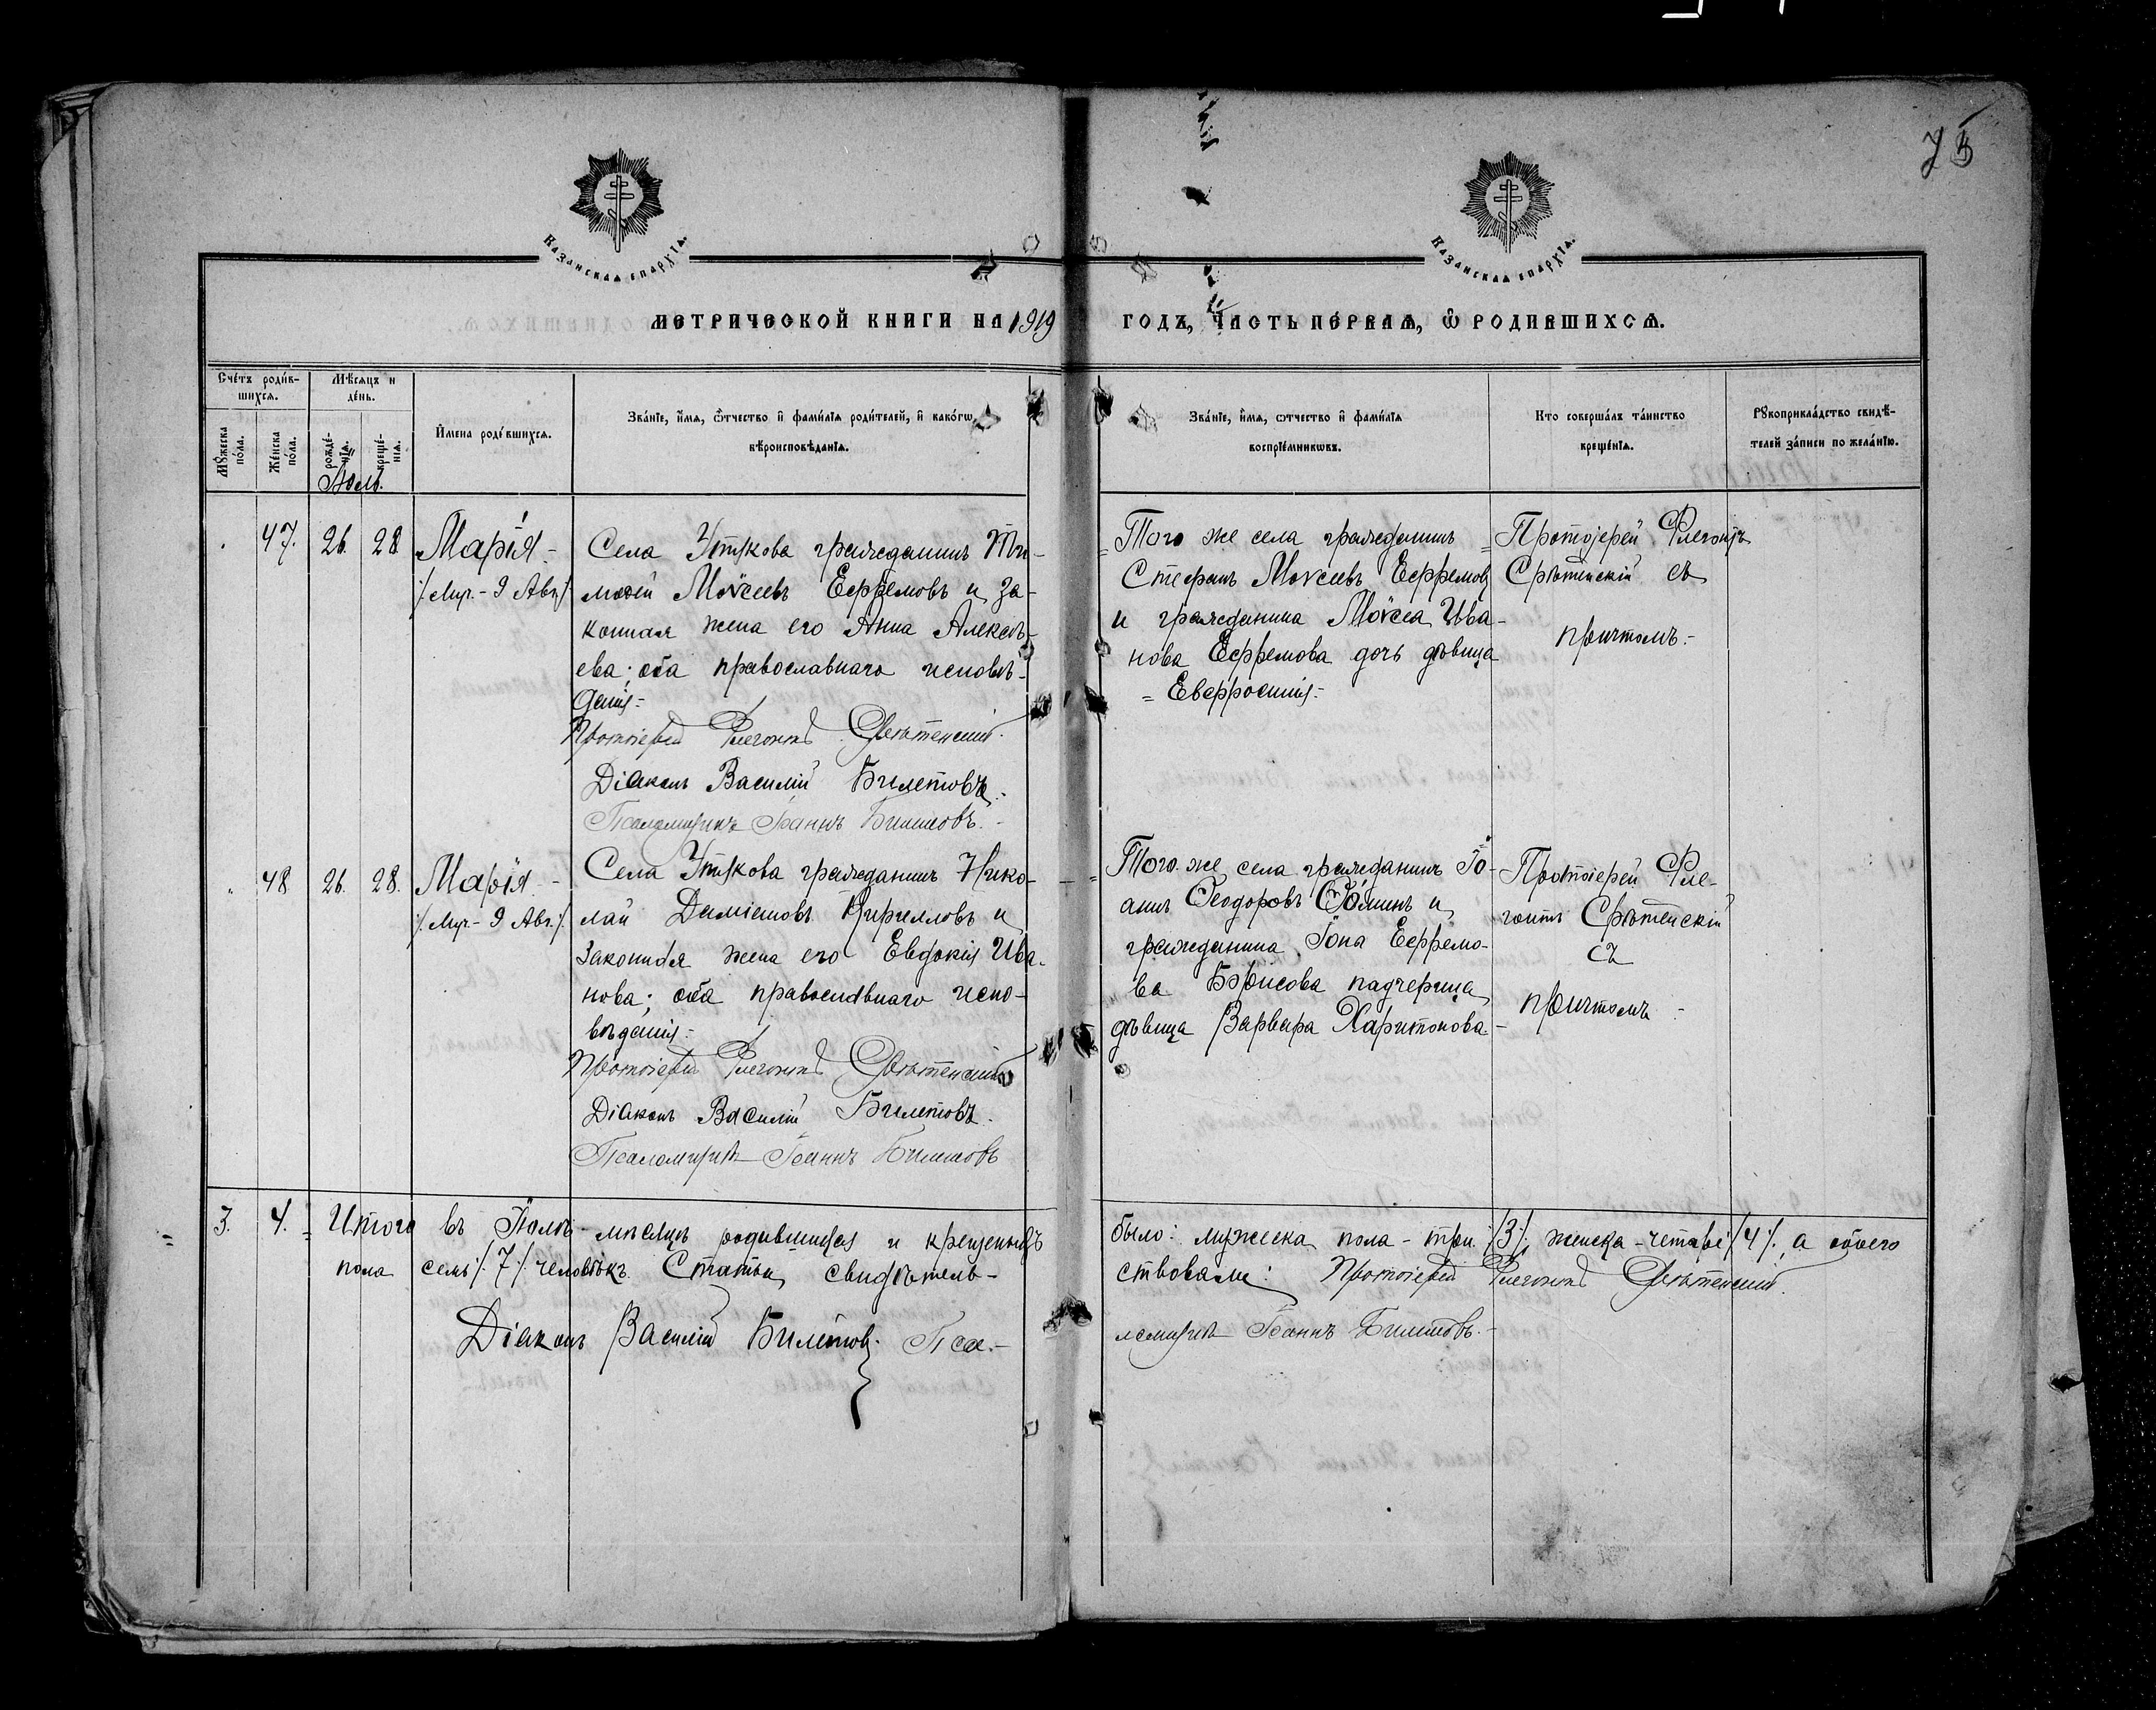 75
КАЗАНСКАЯ ЕПАРХІЯ.
КАЗАНСКАЯ ЕПАРХІЯ.
МЕТРИЧЕСКОЙ КНИГИ НА 1919 ГОДЪ, ЧАСТЬ ПЕРВАЯ, Ѽ РОДИВШИХСѦ.
Сче́тъ роди́вшихсѧ.
Мꙋ́жеска по́ла.
Же́нска по́ла.
Мѣ́сѧцъ и де́нь.
рожде́нїѧ.
креще́нїѧ.
Юль.
И҆мена роди́вшихсѧ.
Зва́нїе, и҆́мѧ, ѻ҆́тчество и҆ фами́лїѧ роди́телей, и҆ како́гѡ
вѣроисповѣ́данїѧ.
Зва́нїе, и҆́мѧ, ѻтчество и҆ фами́лїѧ
воспрїе́мникѡвъ.
Кто соверша́лъ та́инство
креще́нїѧ.
Рꙋкоприкла́дство свидѣ́-
телей за́писи по жела́нїю.
47. 26. 28 Марія-
/: Мур.- 9 Авг:/
Села Утякова гражданинъ Ти-
моѳей Моѵсеевъ Ефремовъ и за-
конная жена его Анна Алексѣ-
ева; оба православнаго исповѣ-
данія-
Протоіерей Флегонтъ Срѣтенскій.
Діаконъ Василій Билетовъ.
Псаломщикъ Іоаннъ Билетовъ.
Того же села гражданинъ
Стефанъ Моѵсеевъ Ефремовъ
и гражданина Моѵсея Ива-
нова Ефремова дочь дѣвица
Евфросинія-
Протоіерей Флегонтъ
Срѣтенскій съ
причтомъ.-
48 26. 28. Марія -
/: Мур.- 9 Авг:/
Села Утякова гражданинъ Нико-
лай Даміановъ Кирилловъ и
законная жена его Евдокія Ива-
нова; оба православнаго испо-
вѣданія-
Протоіерей Флегонтъ Срѣтенскій
Діаконъ Василій Билетовъ.
Псаломщикъ Іоаннъ Билетовъ
Того же села гражданинъ Іо-
аннъ Ѳеодоровъ Ѳоминъ и
гражданина Іона Ефремо-
ва Борисова падчерица,
дѣвица Варвара Харитонова.-
Протоіерей Фле-
гонтъ Срѣтенскій
съ
причтомъ -
3. 4. Итого въ Іюлѣ-мѣсяцѣ родившихся и крещеныхъ было: мужеска пола - три /:3:/, женска - четыре /:4:/, а обоего
пола семь /:7:/ человѣкъ. Статьи свидѣтель-
ствовали: Протоіерей Флегонтъ Срѣтенскій.
Діаконъ Василій Билетовъ. Пса-
ломщикъ Іоаннъ Билетовъ.-